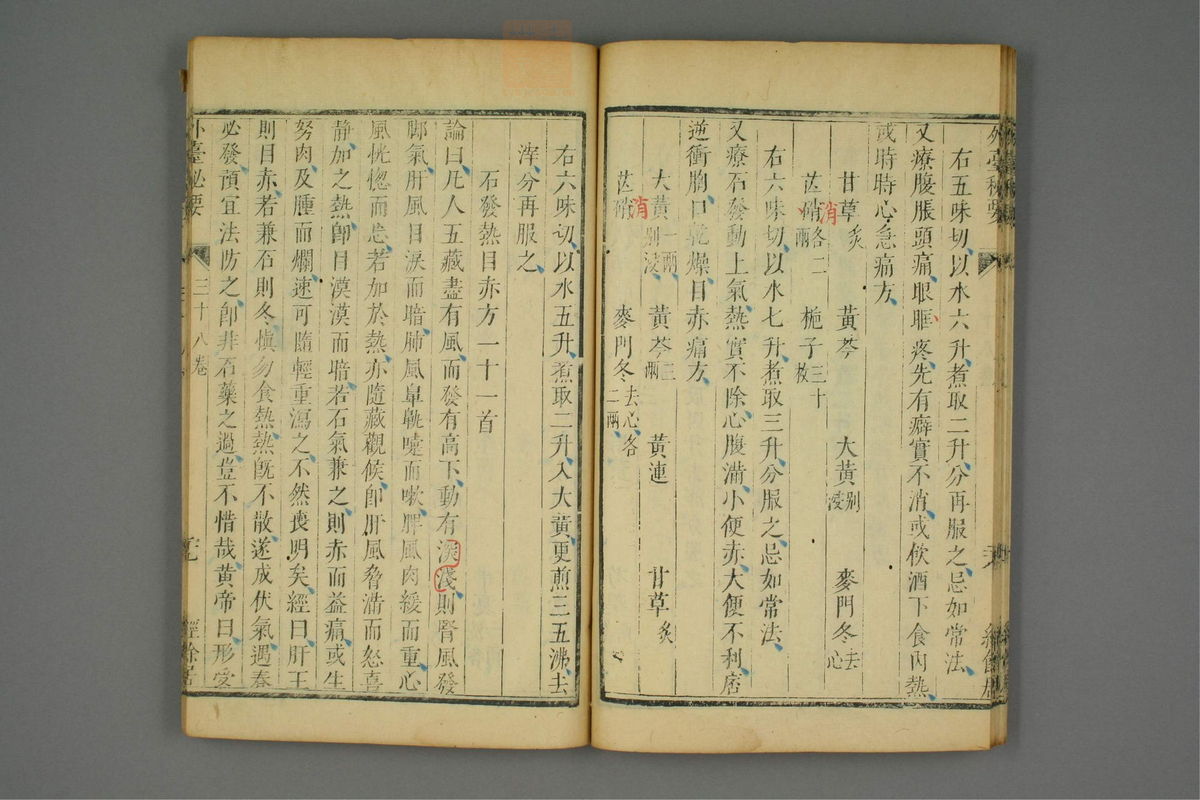 右五味切以水六升煮取二升分再服之忌如常法
又療腹脹頭痛眼眶疼先有癖實不消或飲酒下食內熱
或時時心急痛方
甘草炙 黃芩 大黃別浸 麥門冬去心
芒硝各二兩 梔子三十枚
消
右六味切以水七升煮取三升分服之忌如常法
又療石發動上氣熱實不除心腹滿小便赤大便不利痞
逆衝胸口乾燥目赤痛方
大黃一兩別浸 黃芩三兩 黃連 甘草炙
芒硝 麥門冬去心各二兩
消
右六味切以水五升煮取二升入大黃更煎三五沸去
滓分再服之
石發熱目赤方一十一首
論曰凡人五藏盡有風而發有高下動有深淺則腎風發
腳氣肝風目淚而暗肺風鼻鼽嚏而嗽脾風肉緩而重心
風恍惚而忘若加於熱亦隨藏觀候卽肝風脅滿而怒喜
靜加之熱卽目漠漠而暗若石氣兼之則赤而益痛或生
努肉及腫而爛速可隨輕重瀉之不然喪明矣經曰肝王
則目赤若兼石則冬愼勿食熱熱旣不散遂成伏氣遇春
必發預宜法防之卽非石藥之過豈不惜哉黃帝曰形受
外臺秘要 三十八卷 經餘居